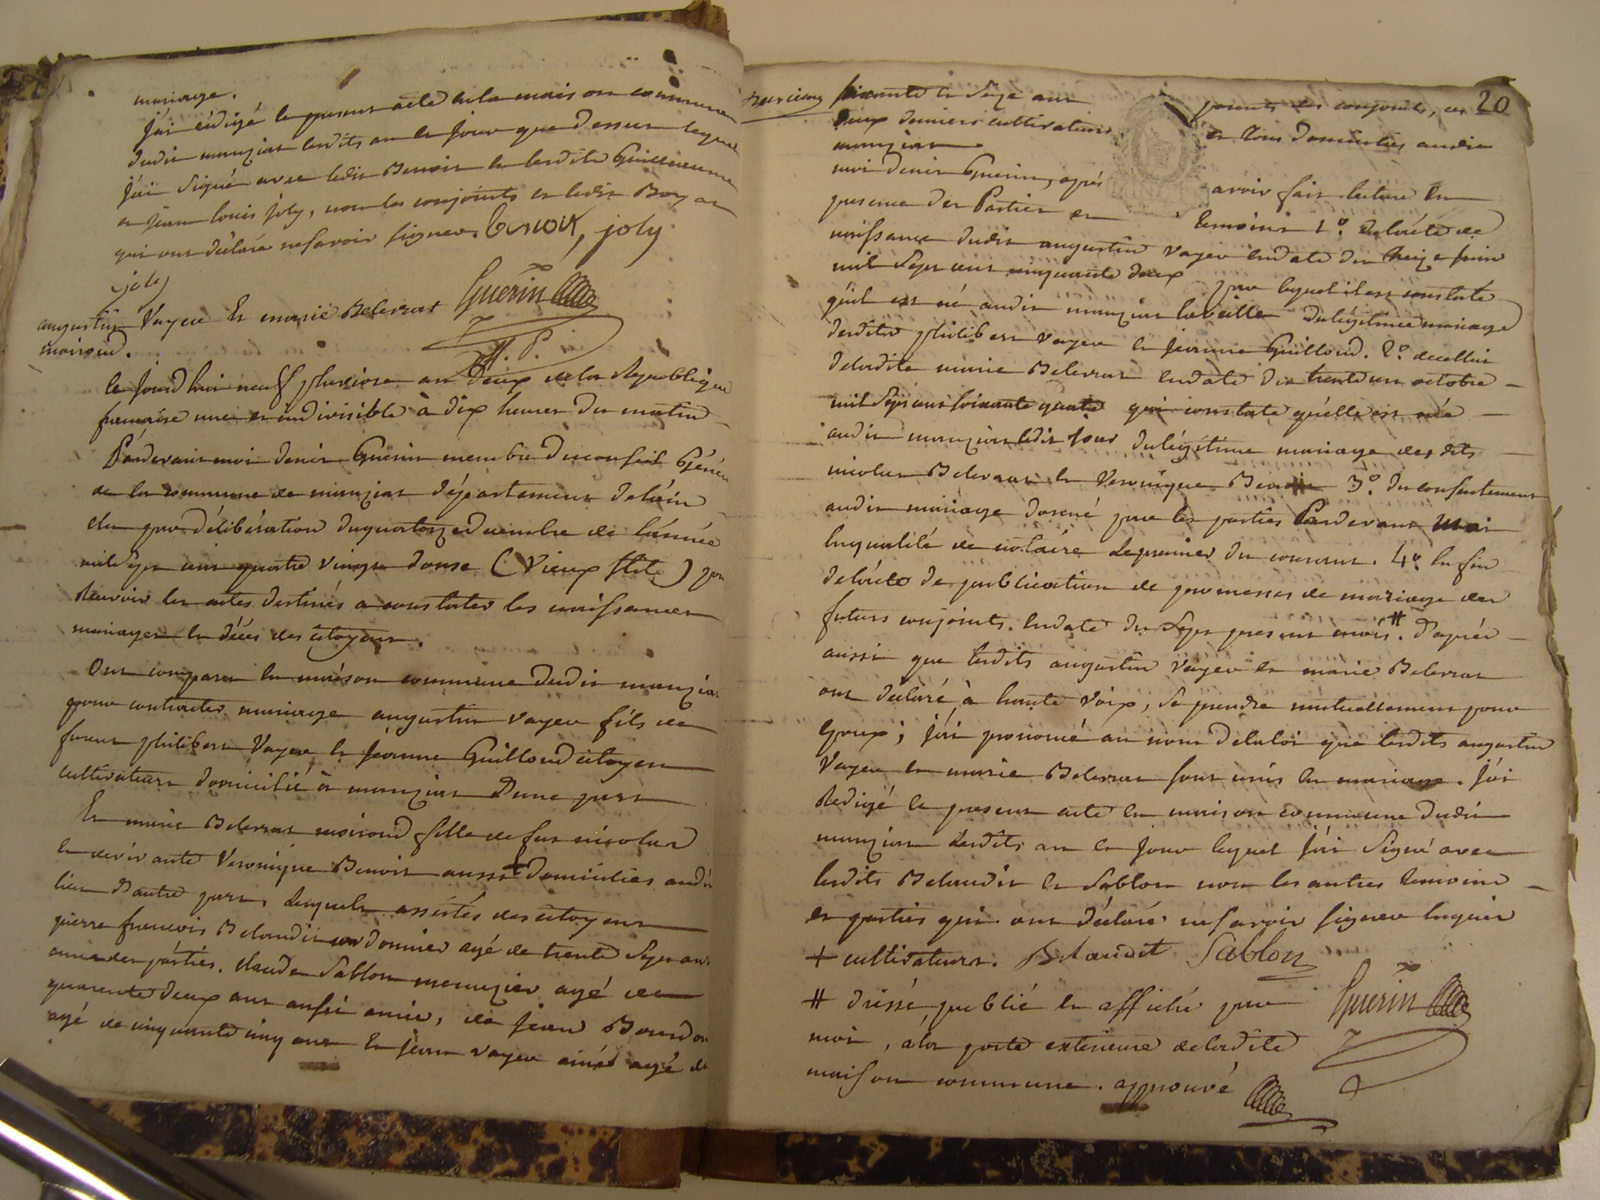 mariage.
j'ai rédigé le present acte en la maison commune
dudit manziat lesdits an et jour que dessus lequel
j'ai signé avec ledit Benoit et ladite Guillerminne
et jean louis joly, non les conjoints et ledit Boyat
qui ont déclaré ne savoir signer benoit, joly
joly
Guerin
augustin Vayeu Et marie Beleurat
moiroud.
M. P.
le jourd'hui neuf pluviose an deux de la Republique
francaise une et indivisible à dix heures du matin
Pardevant moi denis Guerin membre du conseil Généra
de la commune de manziat département de lain
élu par délibération du quatorze decembre de lannée
mil sept cent quatre vingt douse (Vieux stile) pour
Recevoir les actes destinés a constater les naissances
mariages et décès des citoyens.
Ont comparu en maison commune dudit manziat
pour contracter mariage augustin vayeu fils de
feux philibert Vayeu et jeanne Guilloud citoyen
cultivateur domicilié à manziat D'une part
Et marie Beleurat moiroud fille de feu nicolas
et de vivante Veronique Benoit aussi domiciliés audit
lieu D'autre part, lesquels assistés des citoyens
pierre francois Belaudit cordonnier agé de trente sept ans
ami des parties, claude Sablon menuzier agé de
quarente deux ans aussi ami, de jean Bourdon
agé de cinquante cinq ans et jean vayeu ainé agé de
soixante et seze ans
deux derniers cultivateurs
manziat
20
parents des conjoints, ces
et tous domiciliés audit
moi denis Guerin, après avoir fait lecture en
presence des Parties et temoins 1° de lacte de
naissance dudit augustin vayeu endate du treize juin
mil sept cent cinquante deux par lequel il est constate
qu'il est né audit manziat la veille du légitime mariage
desdits philibert vayeu et jeanne Guilloud. 2° de celui
deladite marie Beleurat endate du trente un octobre
mil sept cent soixante quatre qui constate qu'elle est née
audit manziat ledit jour du légitime mariage desdits
nicolas Beleurat et Veronique Benoit 3° du consentement
audit mariage donné par les parties Pardevant moi
en qualité de notaire le premier du courant. 4° enfin
de lacte de publication de promesses de mariage des
futurs conjoints. endate du sept present mois #. d'après
aussi que lesdits augustin vayeu et marie Beleurat
ont déclaré à haute voix, se prendre mutuellement pour
Epoux; j'ai prononcé au nom de la loi que lesdits augustin
Vayeu et marie Beleurat sont unis en mariage. j'ai
Redigé le present acte en maison commune dudit
manziat lesdits an et jour lequel j'ai signé avec
lesdits Belaudit et Sablon non les autres temoins
et parties qui ont déclaré ne savoir signer enquis
+ cultivateurs. Belaudit Sablon
# dressé, publié et affiché par
moi, a la porte exterieure de ladite
maison commune. approuvé
Guerin